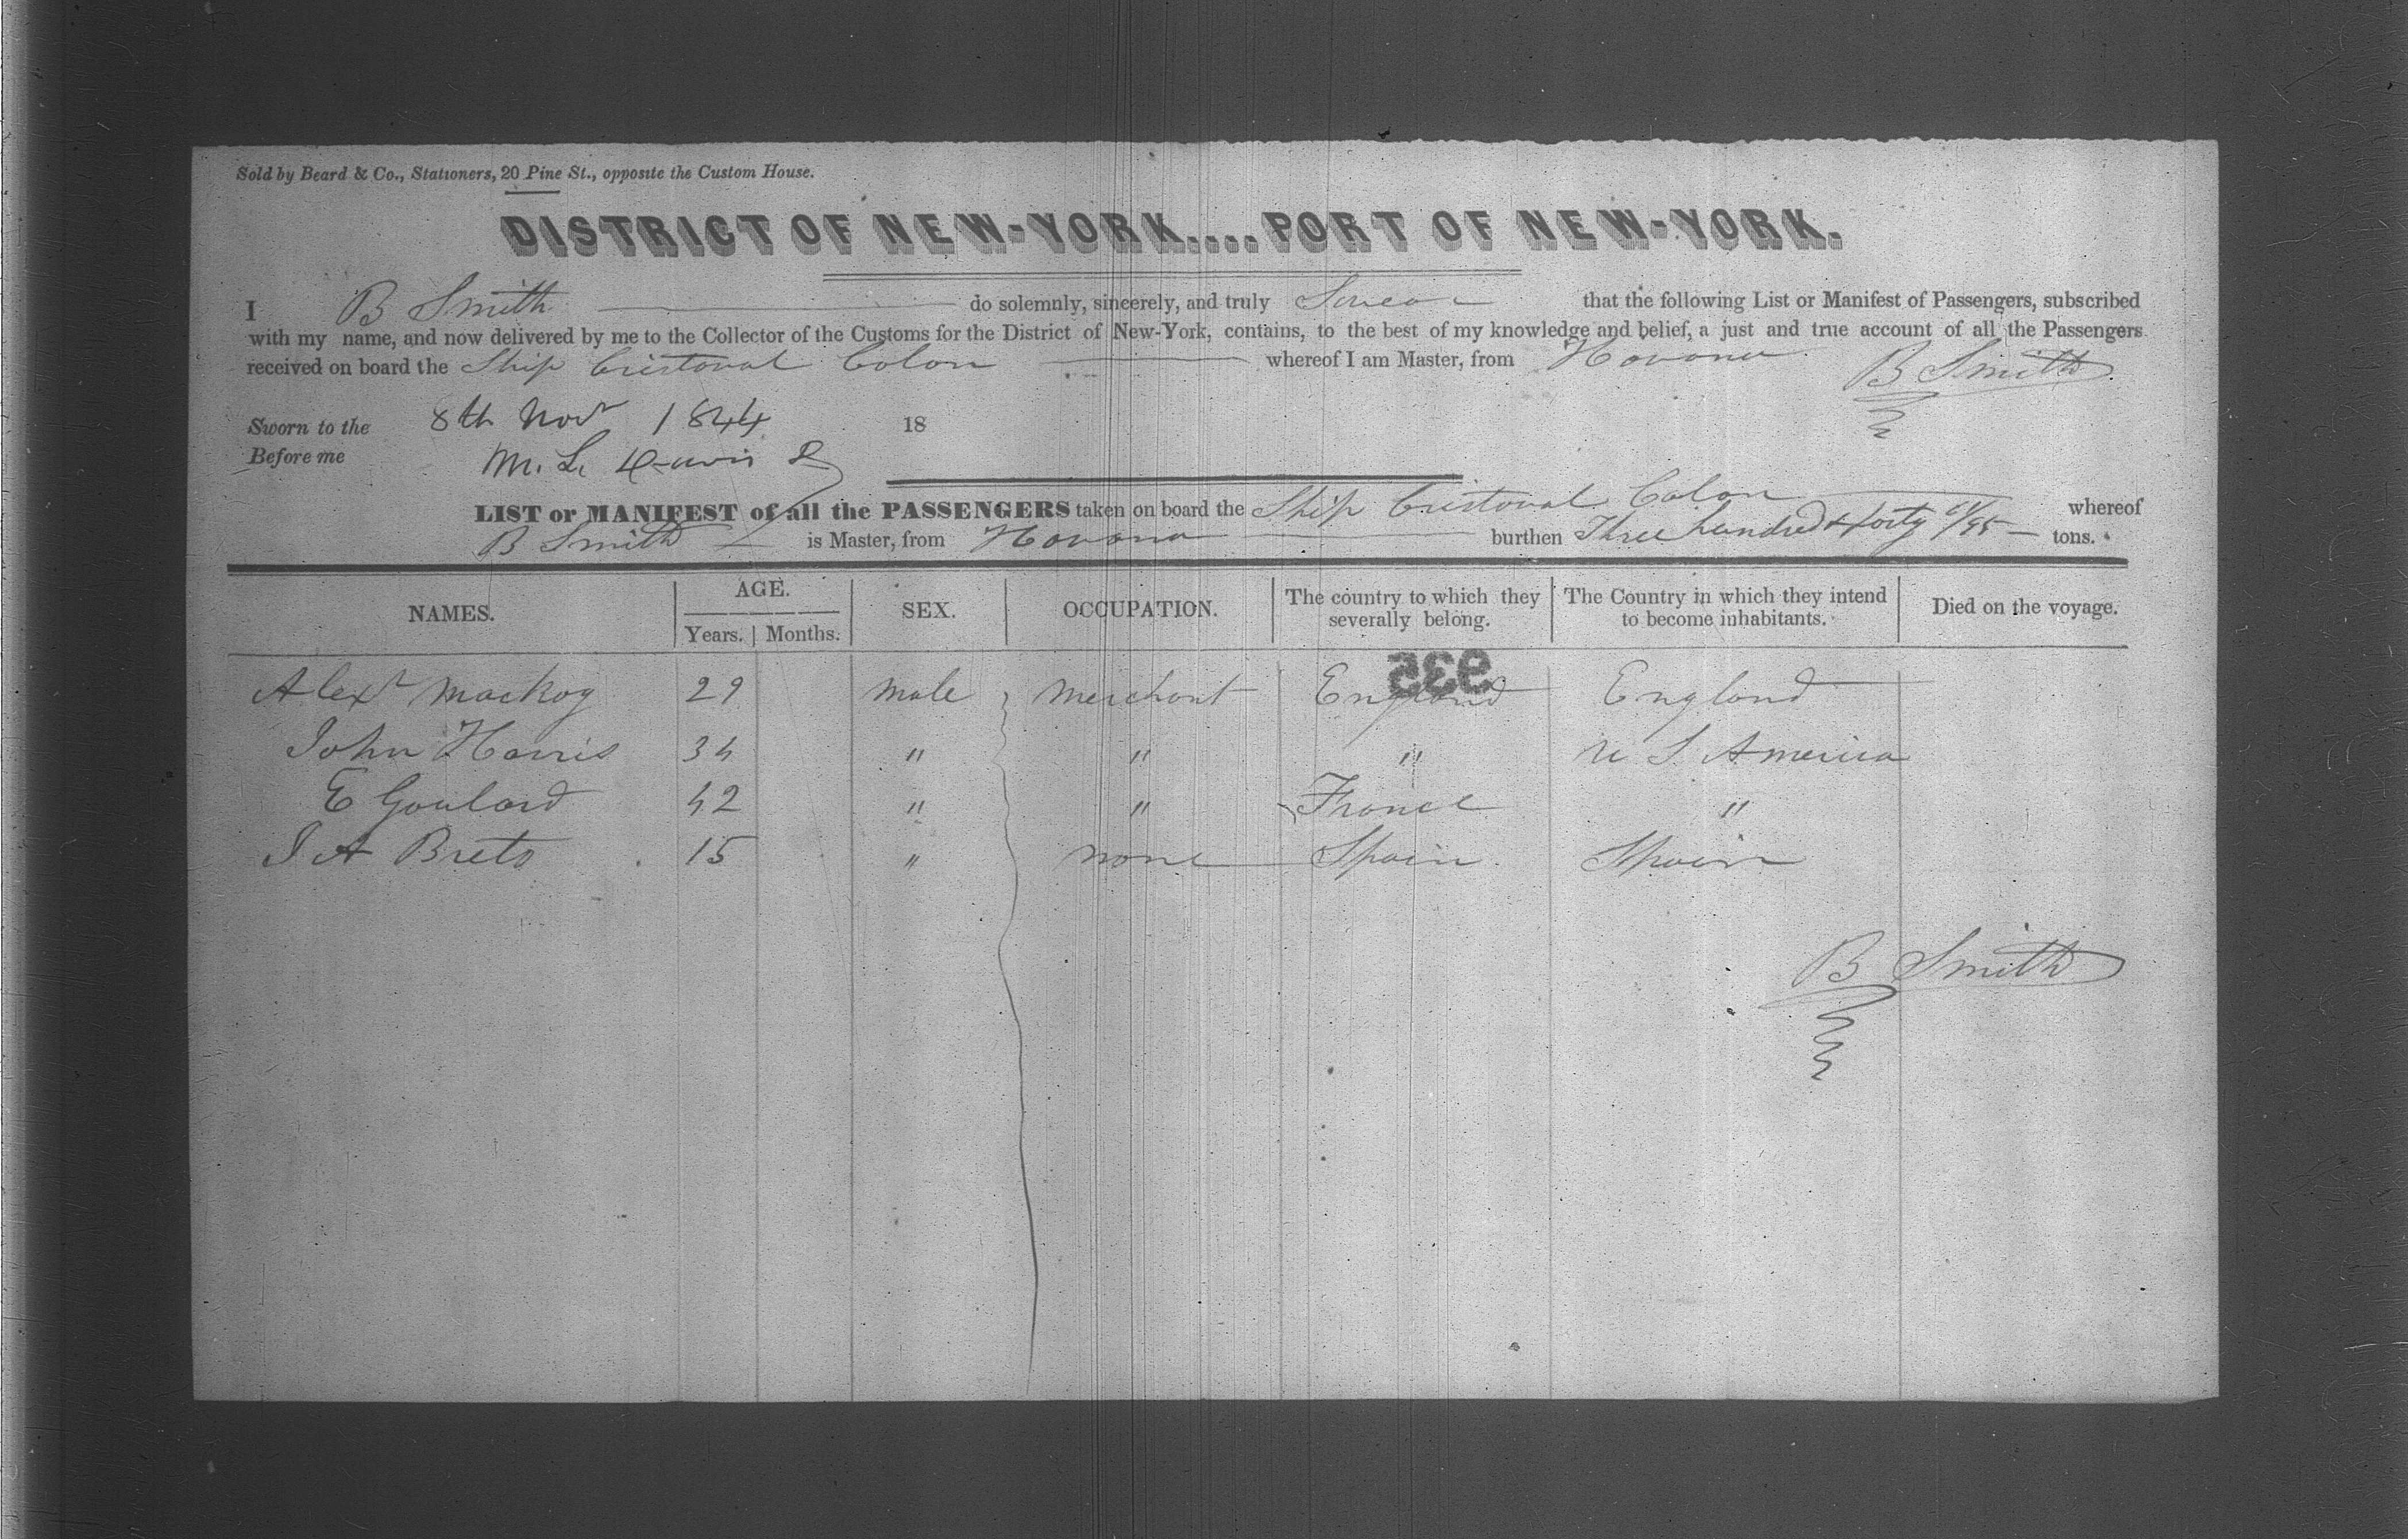 Sold by Beard & Co., Stationers, 20 Pine St., opposite the Custom House.
DISTRICT OF NEW-YORK....PORT OF NEW-YORK.
I B Smith do solemnly, sincerely, and truly Swear that the following List or Manifest of Passengers, subscribed
with my name, and now delivered by me to the Collector of the Customs for the District of New-York, contains, to the best of my knowledge and belief, a just and true account of all the Passengers
received on board the Ship Cristoval Colon whereof I am Master, from Havana
B Smith
Sworn to the 8th Novr 1844 18
Before me M. L. Davis
LIST or MANIFEST of all the PASSENGERS taken on board the Ship Cristoval Colon whereof
B Smith is Master, from Havana burthen Three hundred & forty /95 tons.
NAMES. AGE. Years. Months. SEX. OCCUPATION. The country to which they severally belong. The Country in which they intend to become inhabitants. Died on the voyage.
935
Alexr Mackoy 29 Male Merchant England England
John Harris 34 " " " U S America
E Goulard 42 " " France "
J A Breto 15 " none Spain Spain
B Smith